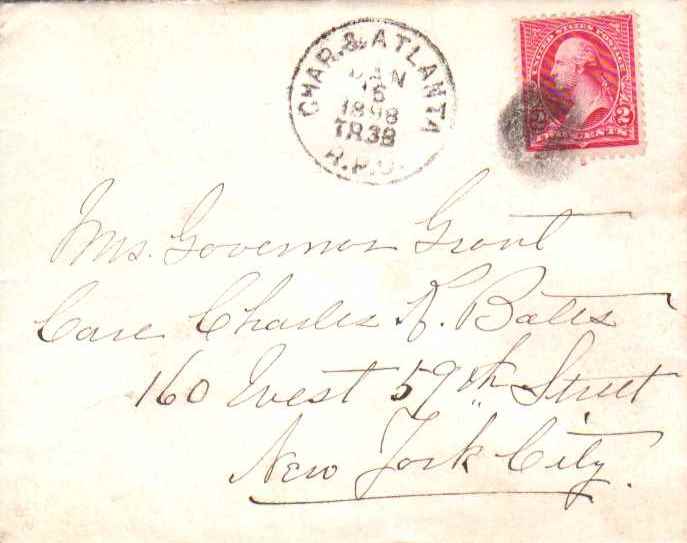 CHAR. & ATLANTA
JAN
15
1898
TR38
R.P.O.
UNITED STATES POSTAGE
2
Mrs. Governor Grant
Care Charles R. Bates
160 West 59th Street
New York City.